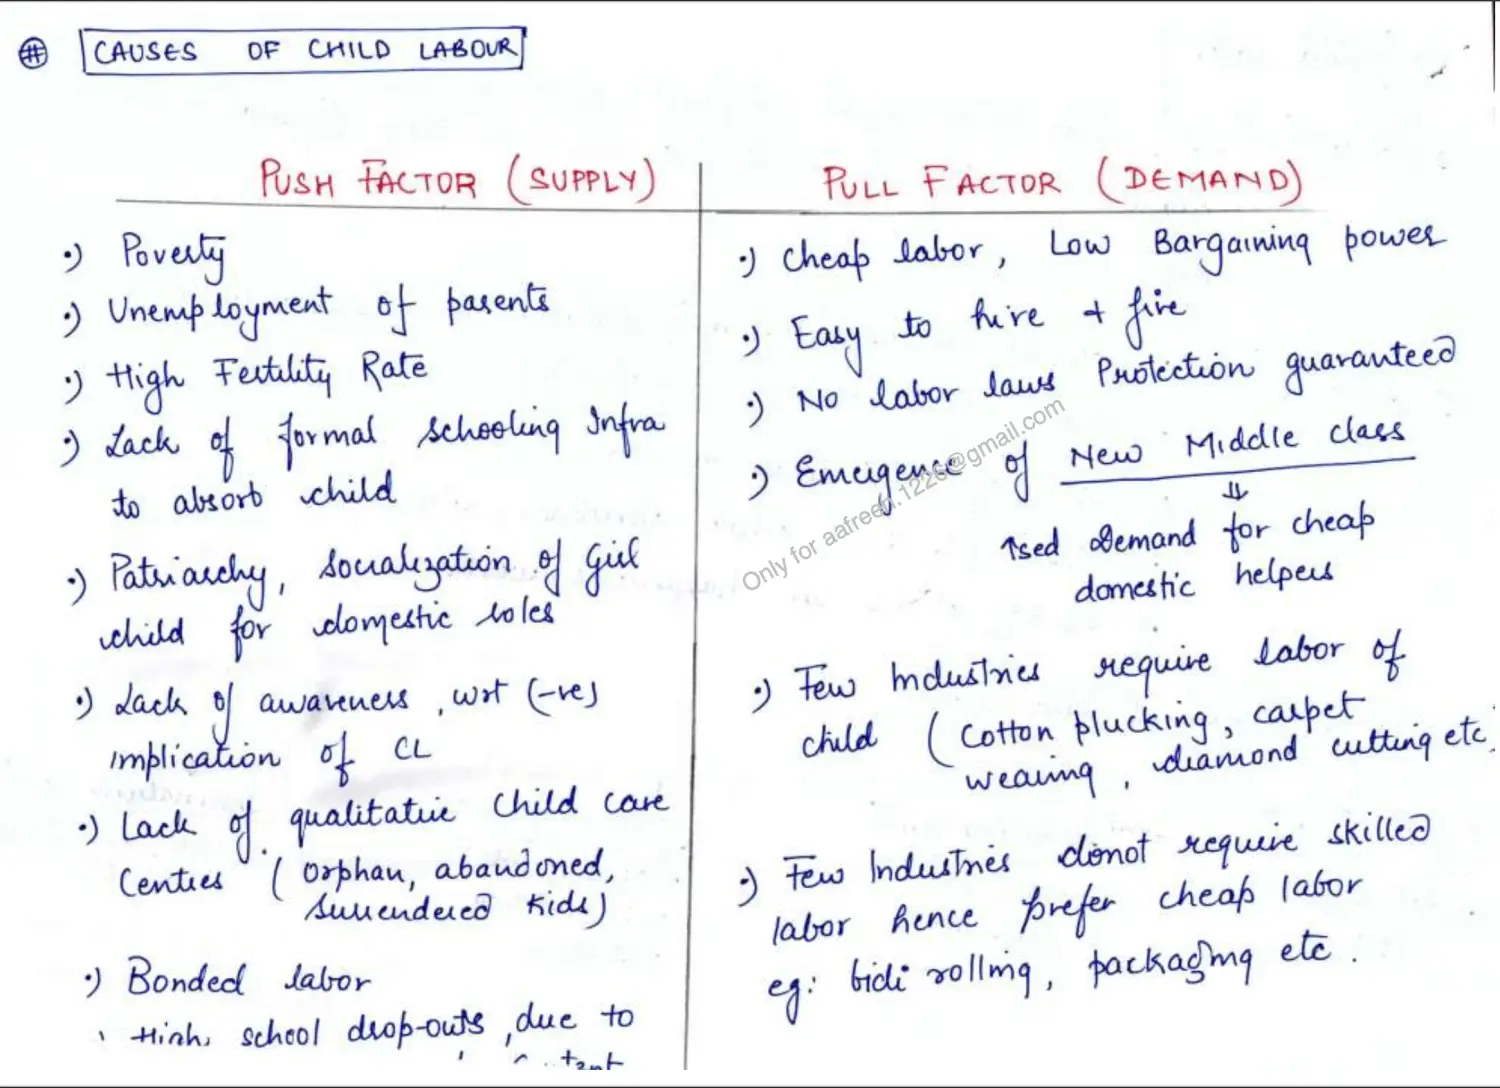 # CAUSES OF CHILD LABOUR
PUSH FACTOR (SUPPLY)
·) Poverty
·) Unemployment of parents
·) High Fertility Rate
·) Lack of formal schooling Infra
to absorb child
·) Patriarchy, socialization of Girl
child for domestic roles
·) Lack of awareness, wrt (-ve)
implication of CL
·) Lack of qualitative Child care
Centres (Orphan, abandoned,
surrendered kids)
·) Bonded labor
High school drop-outs, due to
PULL FACTOR (DEMAND)
·) Cheap labor, Low Bargaining power
·) Easy to hire + fire
·) No labor laws Protection guaranteed
·) Emergence of New Middle class
⇓
↑sed Demand for cheap
domestic helpers
·) Few Industries require labor of
child (Cotton plucking, carpet
weaving, diamond cutting etc)
·) Few Industries donot require skilled
labor hence prefer cheap labor
eg: bidi rolling, packaging etc.
Only for aafreen.1226@gmail.com